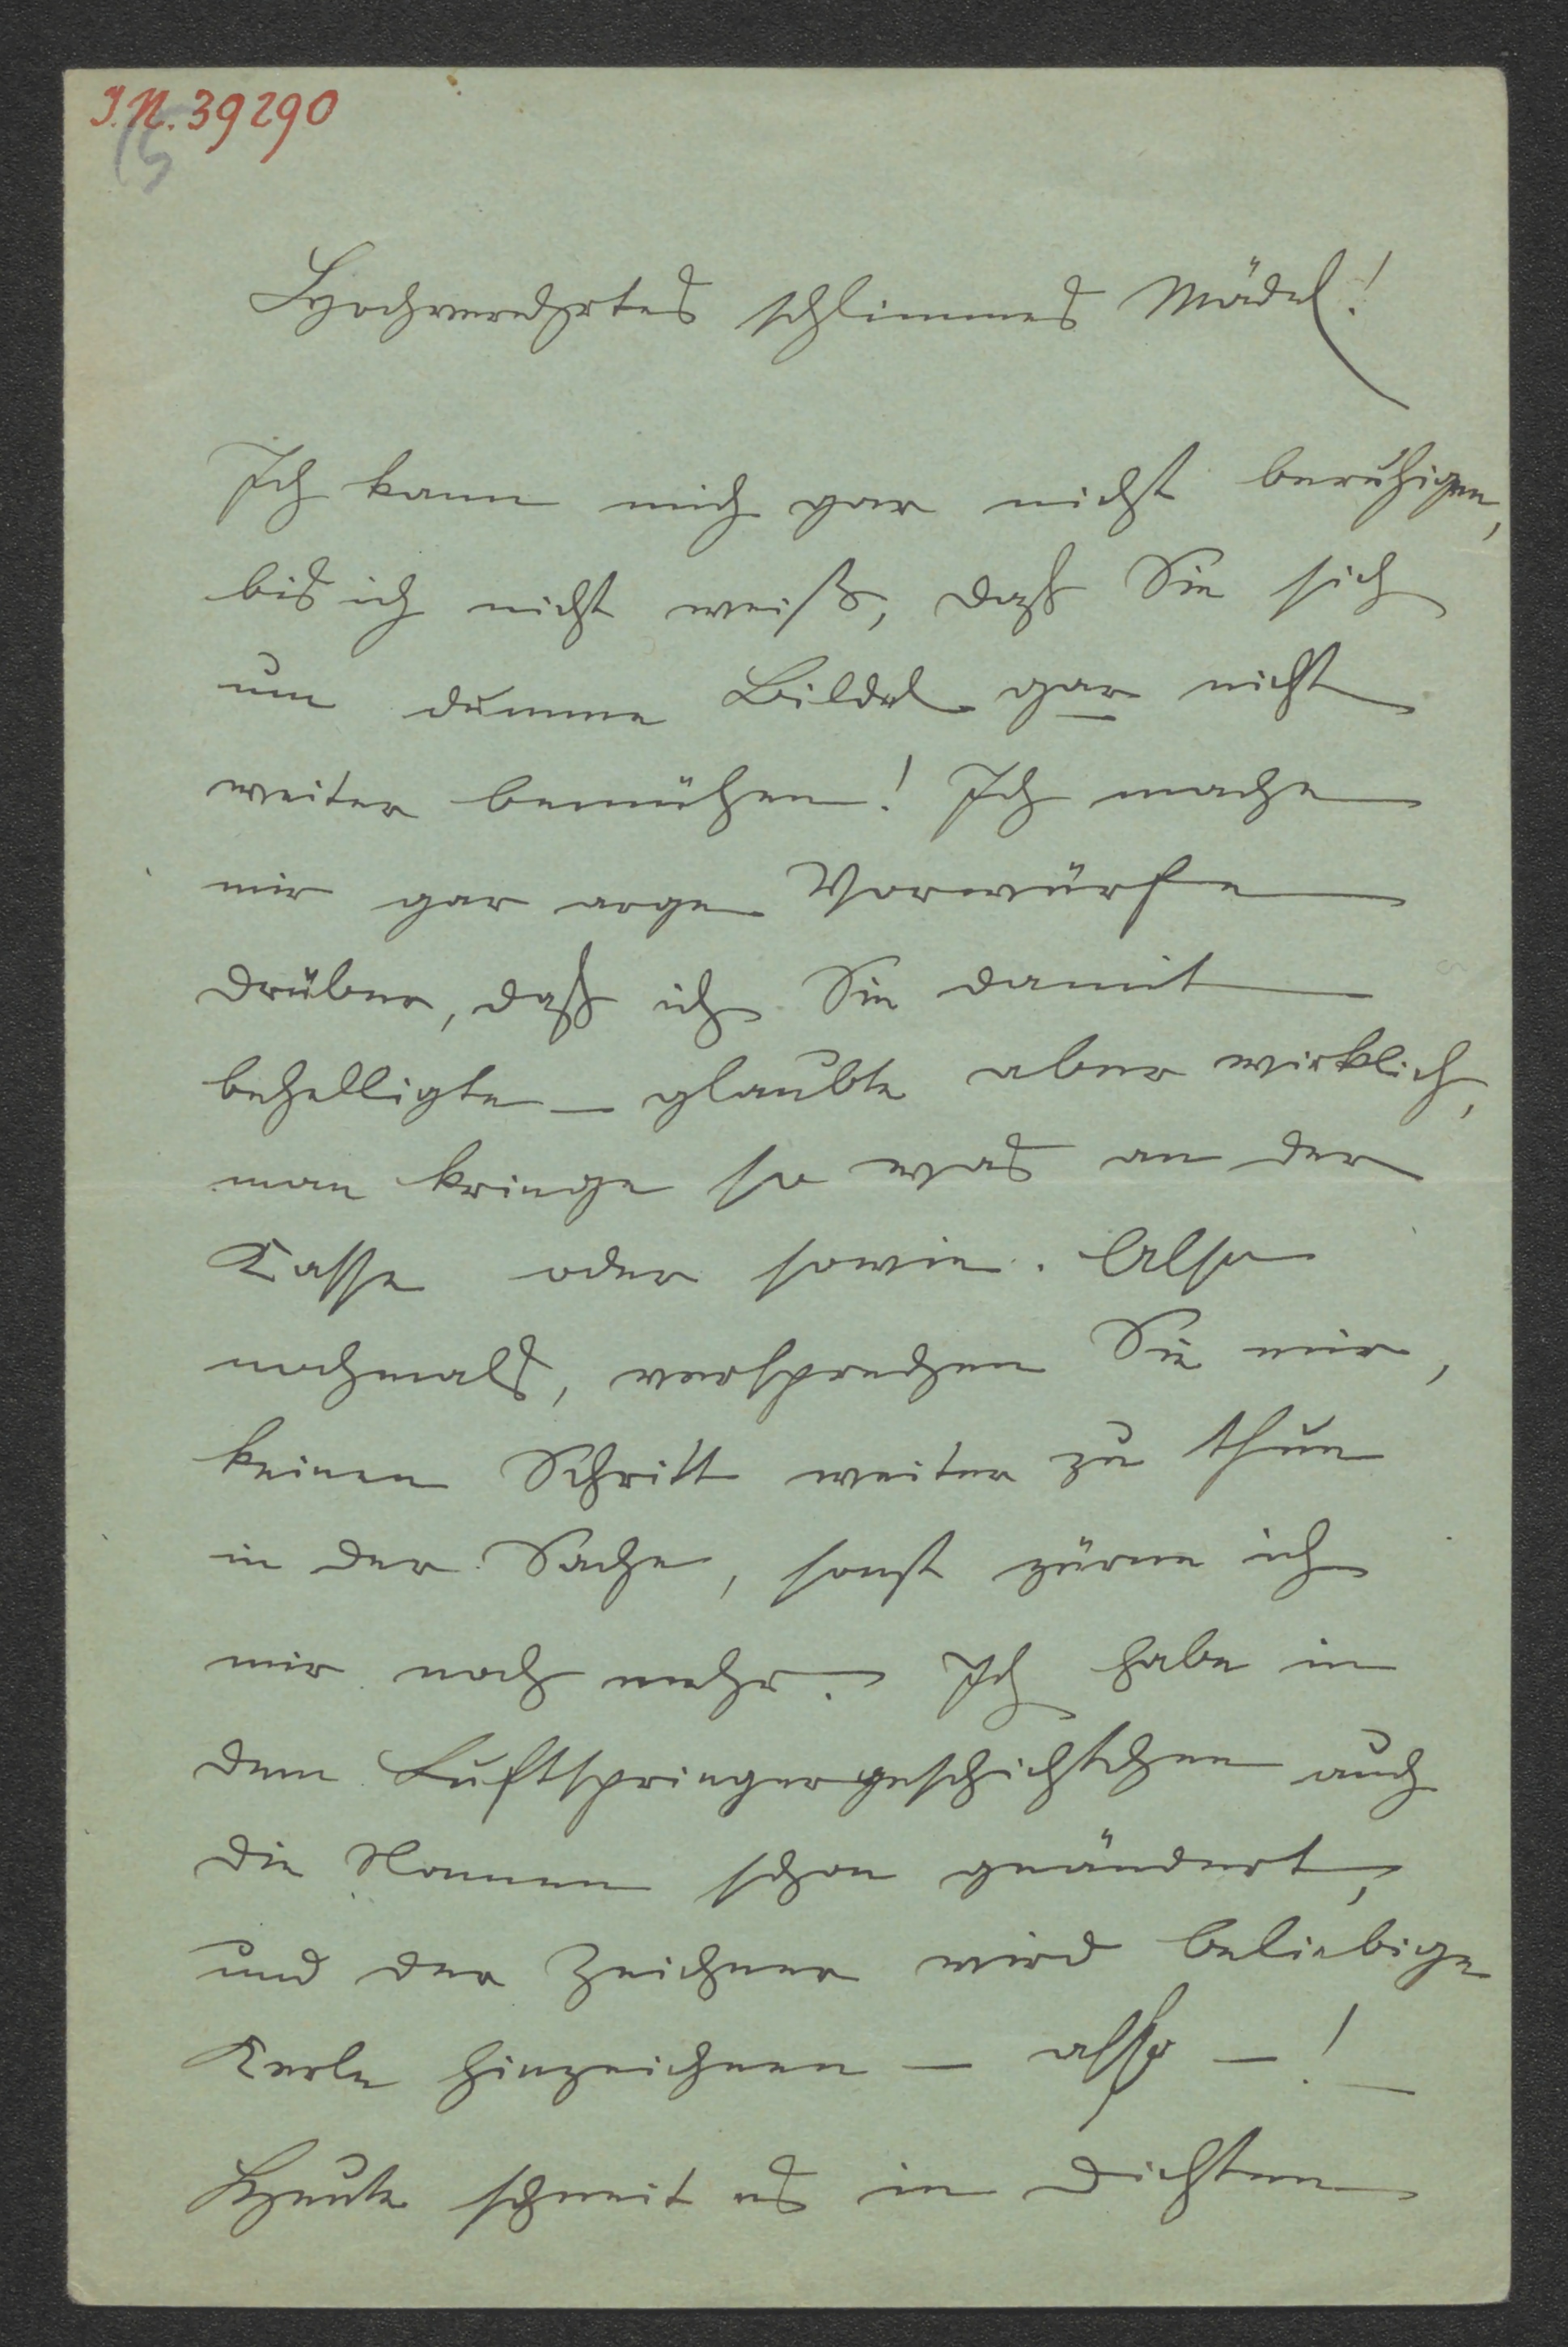 I.N. 39290
15
Hochverehrtes schlimmes Mädel!
Ich kann mich gar nicht beruhigen,
bis ich nicht weiß, daß Sie sich
um dumme Bildel gar nicht
weiter bemühen! Ich mache
mir gar arge Vorwürfe
drüber, daß ich Sie damit
behelligte – glaubte aber wirklich,
man kriege so was an der
Kasse oder sowie. Also
nochmals, versprechen Sie mir,
keinen Schritt weiter zu thun
in der Sache, sonst zürne ich
mir noch mehr. – Ich habe in
dem Luftspringergeschichtchen auch
die Namen schon geändert,
und der Zeichner wird beliebige
Kerle hinzeichnen – also – ! –
Heute schneit es in dichten